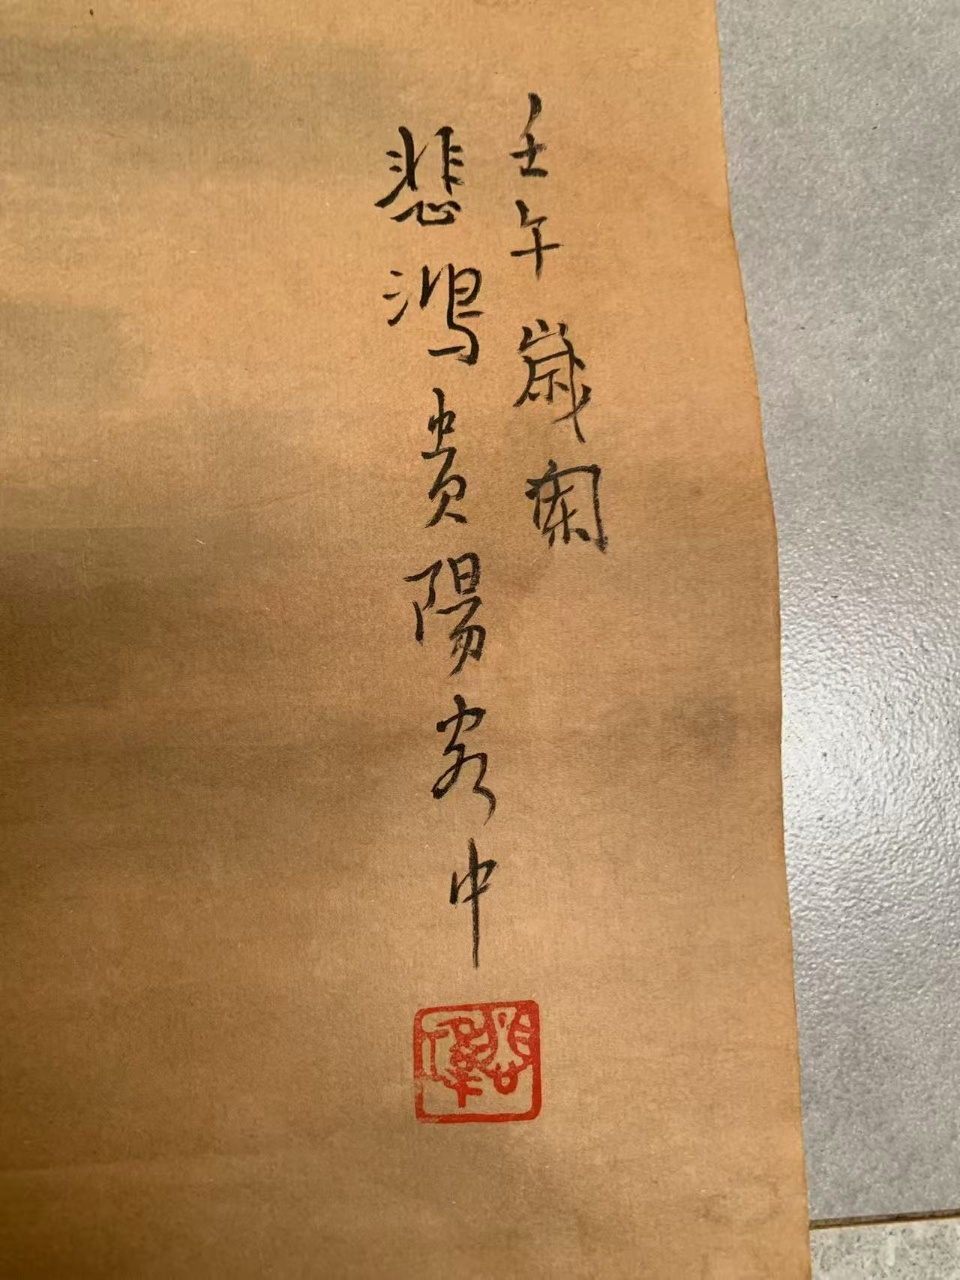 壬午歲闌
悲鴻貴陽客中